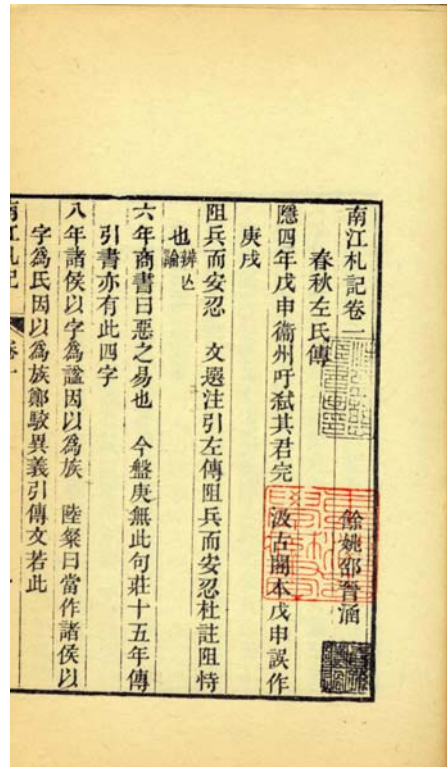 南江札記卷一
餘姚邵晉涵
春秋左氏傳
隱四年戊申衞州吁弑其君完　汲古閣本戊申誤作
庚戌
阻兵而安忍　文選注引左傳阻兵而安忍杜註阻恃
也辨亾論
六年商書曰惡之易也　今盤庚無此句莊十五年傳
引書亦有此四字
八年諸侯以字爲諡因以爲族　陸粲曰當作諸侯以
字爲氏因以爲族鄭駁異義引傳文若此
南江札記
卷一